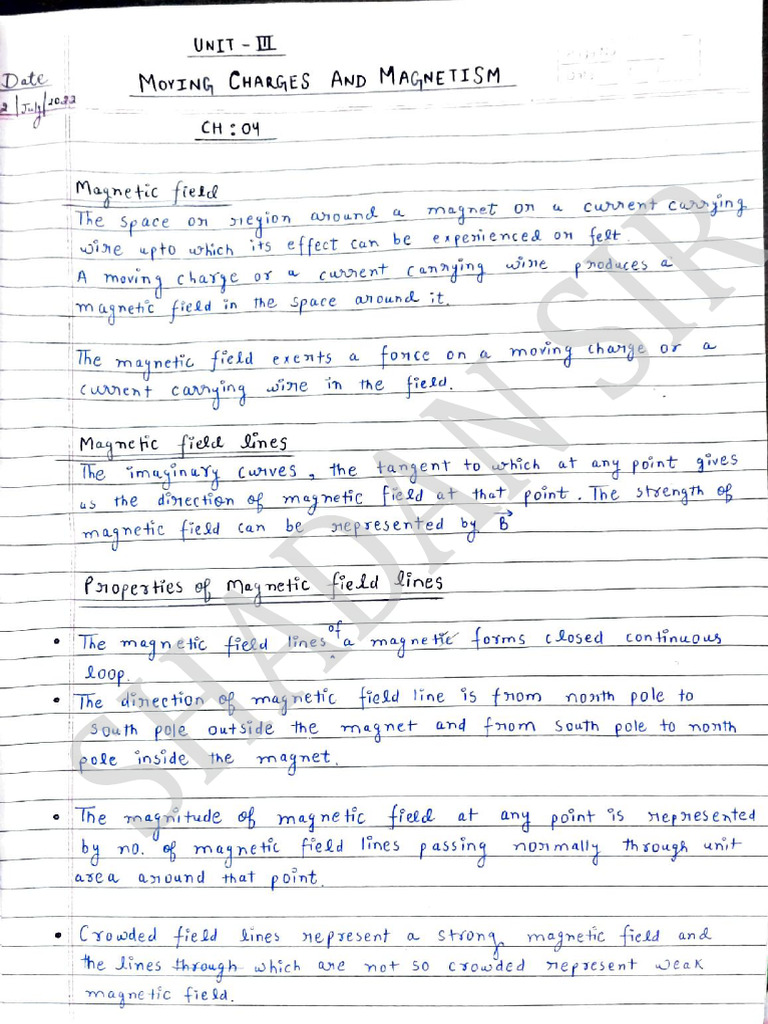 UNIT - III
Date
MOVING CHARGES AND MAGNETISM
2 | July | 2022
CH : 04
Magnetic field
The space or region around a magnet or a current carrying
wire upto which its effect can be experienced or felt.
A moving charge or a current carrying wire produces a
magnetic field in the space around it.
The magnetic field exerts a force on a moving charge or a
current carrying wire in the field.
Magnetic field lines
The imaginary curves, the tangent to which at any point gives
us the direction of magnetic field at that point. The strength of
magnetic field can be represented by B⃗
Properties of Magnetic field lines
• The magnetic field lines of a magnetic forms closed continuous
loop.
• The direction of magnetic field line is from north pole to
south pole outside the magnet and from south pole to north
pole inside the magnet.
• The magnitude of magnetic field at any point is represented
by no. of magnetic field lines passing normally through unit
area around that point.
• Crowded field lines represent a strong magnetic field and
the lines through which are not so crowded represent weak
magnetic field.
SHADAN SIR